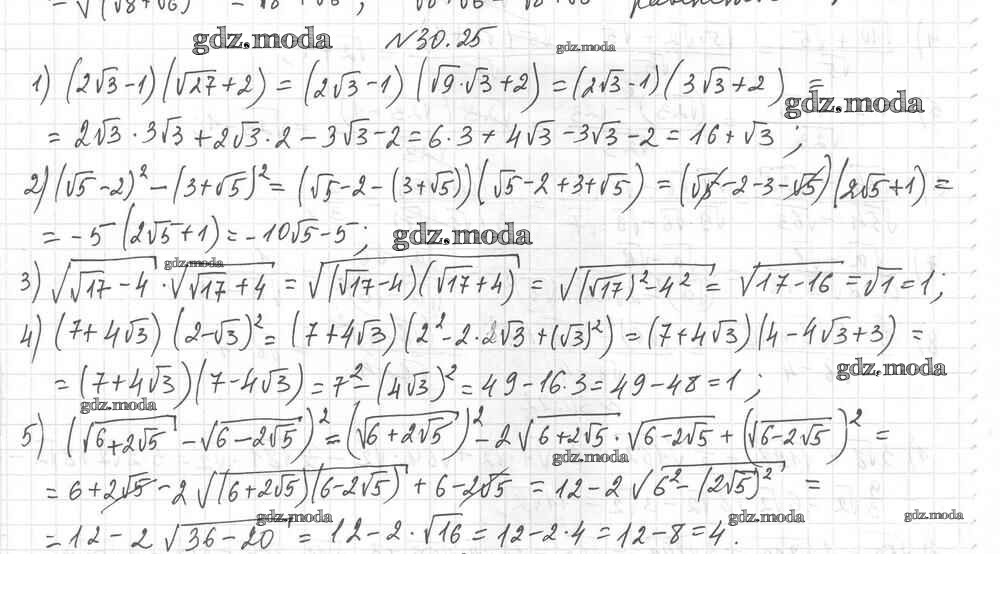 = √(√8+√6)² = √8+√6 ;
gdz.moda №30.25 gdz.moda
1) (2√3-1)(√27+2) = (2√3-1)(√9·√3+2) = (2√3-1)(3√3+2) =
gdz.moda
= 2√3·3√3+2√3·2-3√3-2=6·3+4√3-3√3-2=16+√3 ;
2) (√5-2)²-(3+√5)²=(√5-2-(3+√5))(√5-2+3+√5) = (√5-2-3-√5)(2√5+1) =
= -5(2√5+1)=-10√5-5; gdz.moda
gdz.moda
3) √(√17-4)·√(√17+4) = √((√17-4)(√17+4)) = √((√17)²-4²) = √(17-16) = √1=1;
4) (7+4√3)(2-√3)²=(7+4√3)(2²-2·2√3+(√3)²)=(7+4√3)(4-4√3+3) =
gdz.moda
= (7+4√3)(7-4√3)=7²-(4√3)²=49-16·3=49-48=1 ;
gdz.moda
5) (√(6+2√5)-√(6-2√5))²=(√(6+2√5))²-2√(6+2√5)·√(6-2√5)+(√(6-2√5))² =
gdz.moda
= 6+2√5-2√((6+2√5)(6-2√5))+6-2√5 = 12-2√(6²-(2√5)²) =
gdz.moda gdz.moda gdz.moda
=12-2√(36-20) = 12-2·√16=12-2·4=12-8=4.